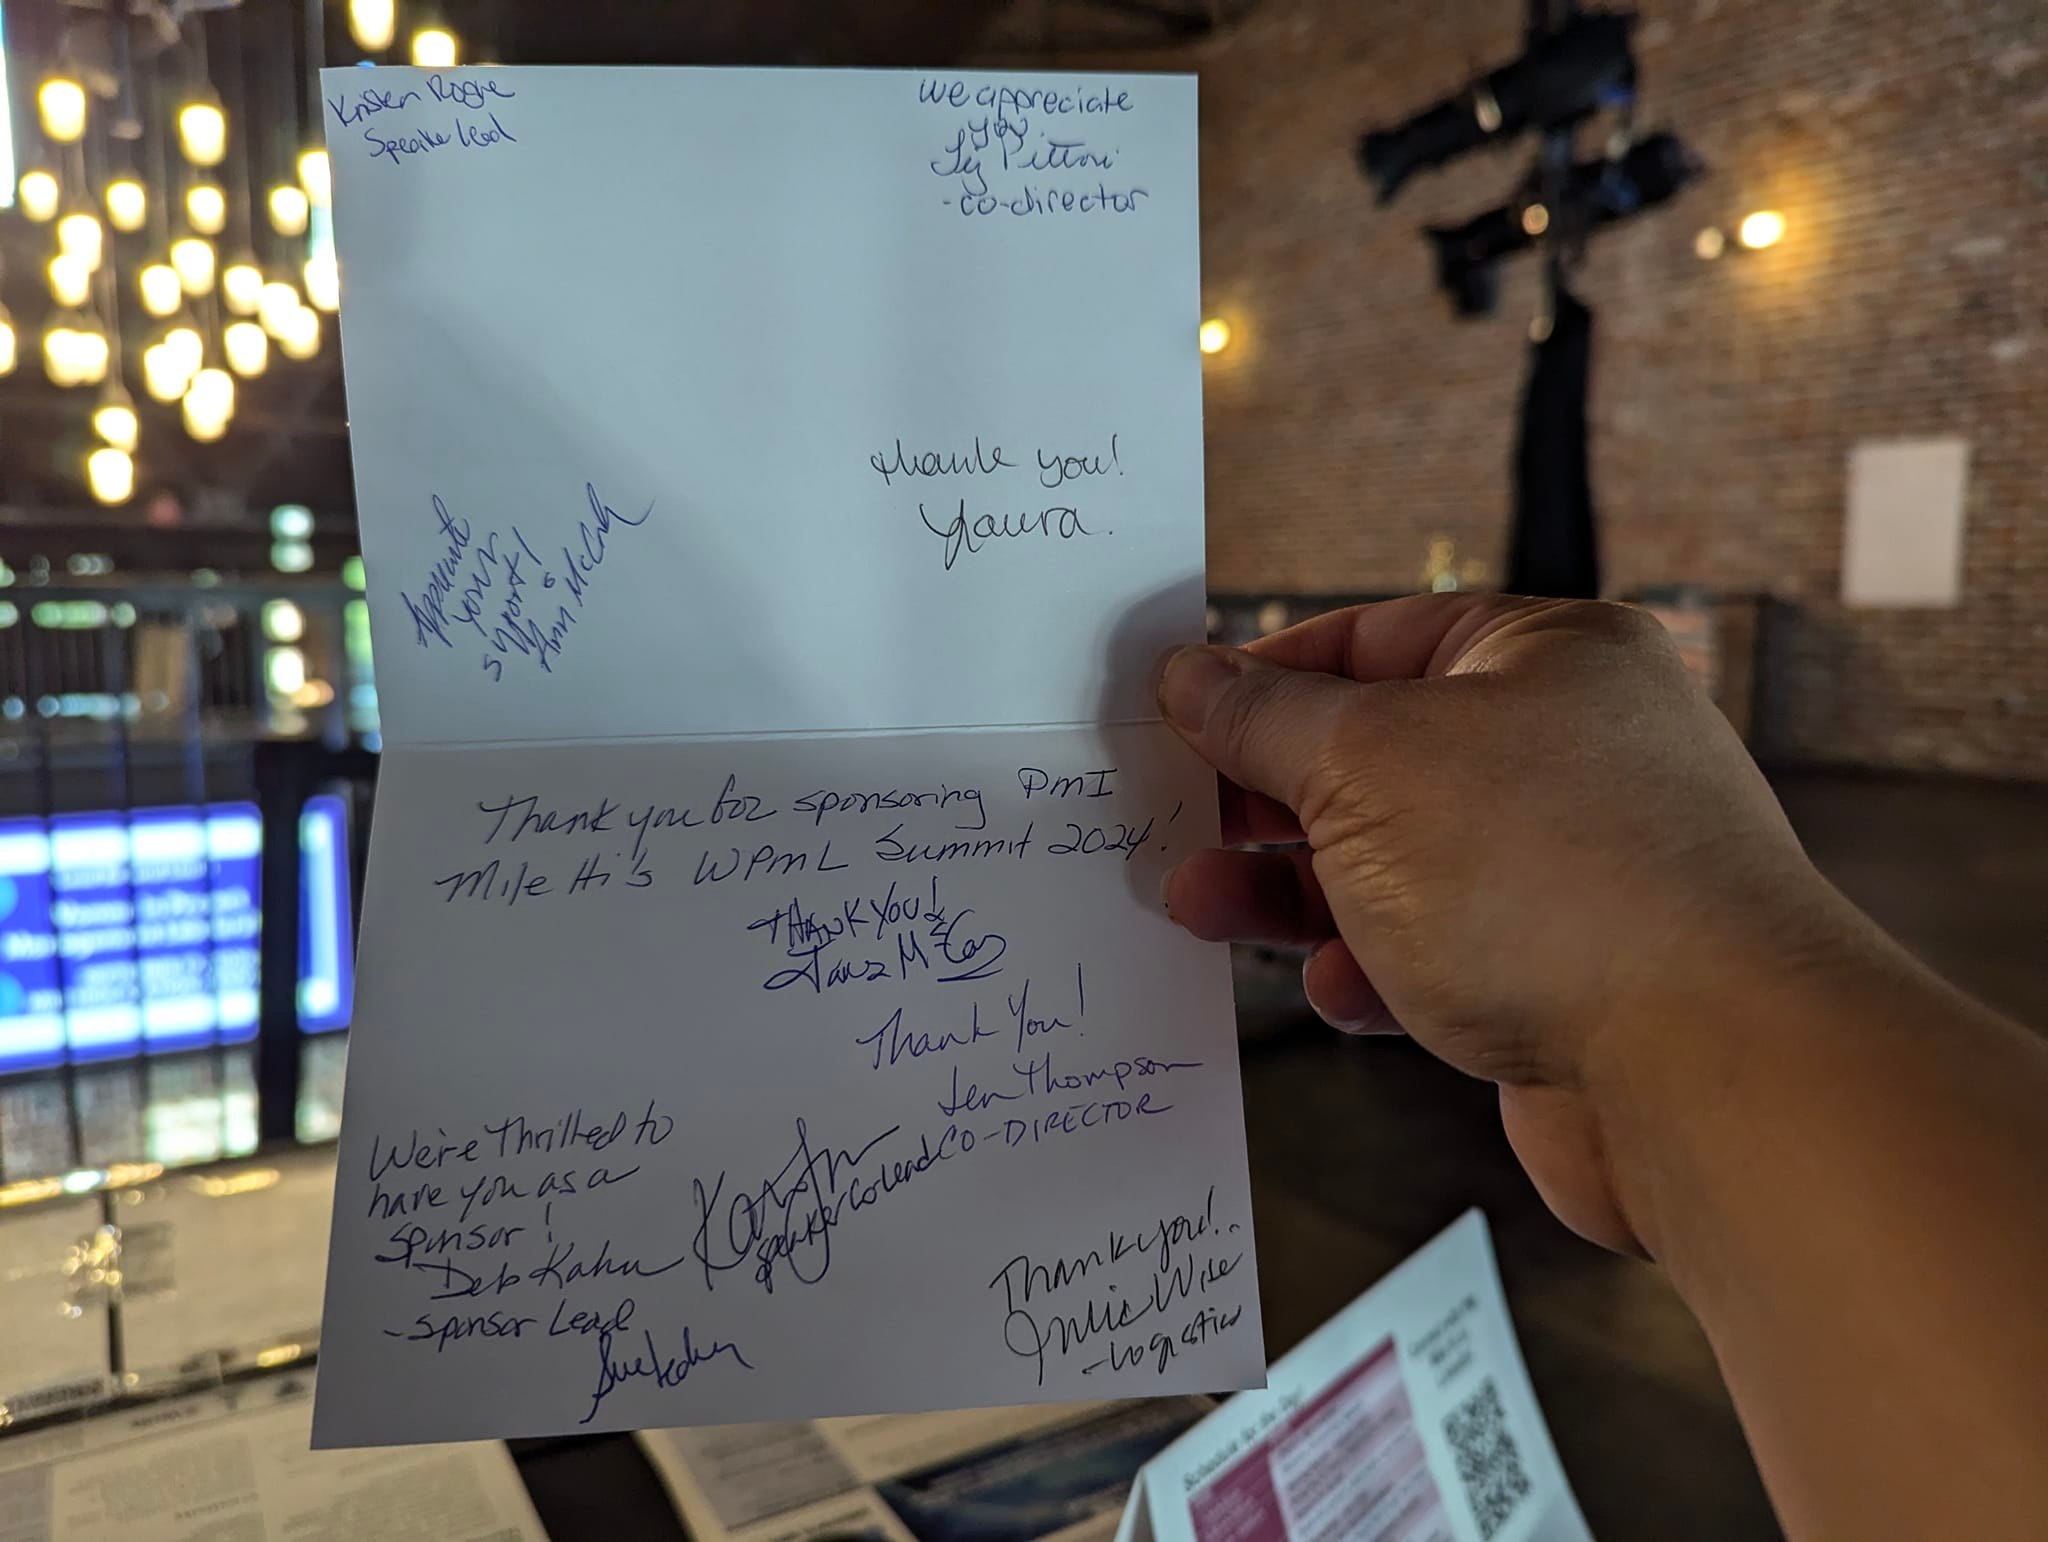 Kristen Rogne
Speaker Lead
We appreciate
you.
Pittoni
-co-director
thank you!
Laura.
Appreciate
your
support!
Ann
Thank you for sponsoring PMI
Mile Hi's WPML Summit 2024!
THANK YOU!
Thank You!
Jen Thompson
CO-DIRECTOR
We're Thrilled to
have you as a
sponsor!
Deb Kahn
-sponsor Lead
Speaker Co Lead
Thank you!
Julie Wise
-Logistics
Schedule for the Day